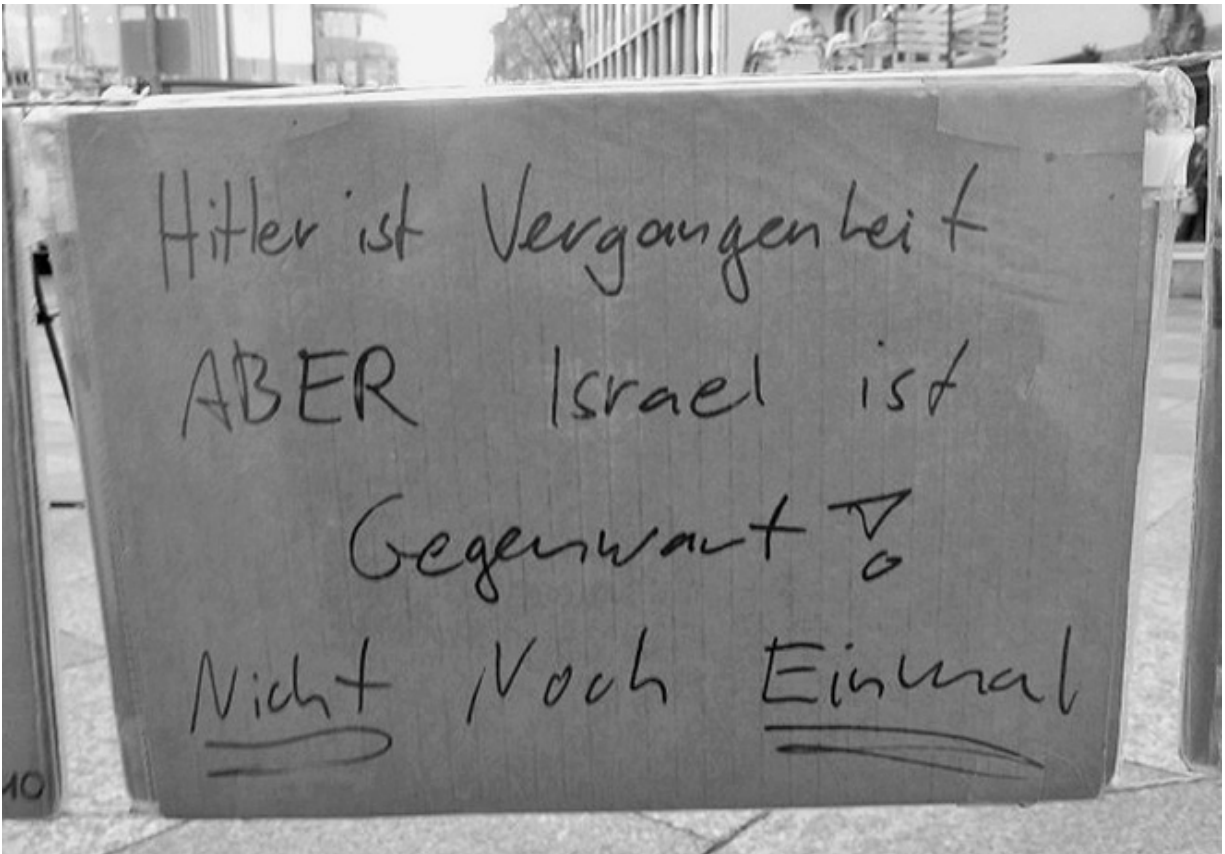 Hitler ist Vergangenheit
ABER Israel ist
Gegenwart!
Nicht Noch Einmal
10